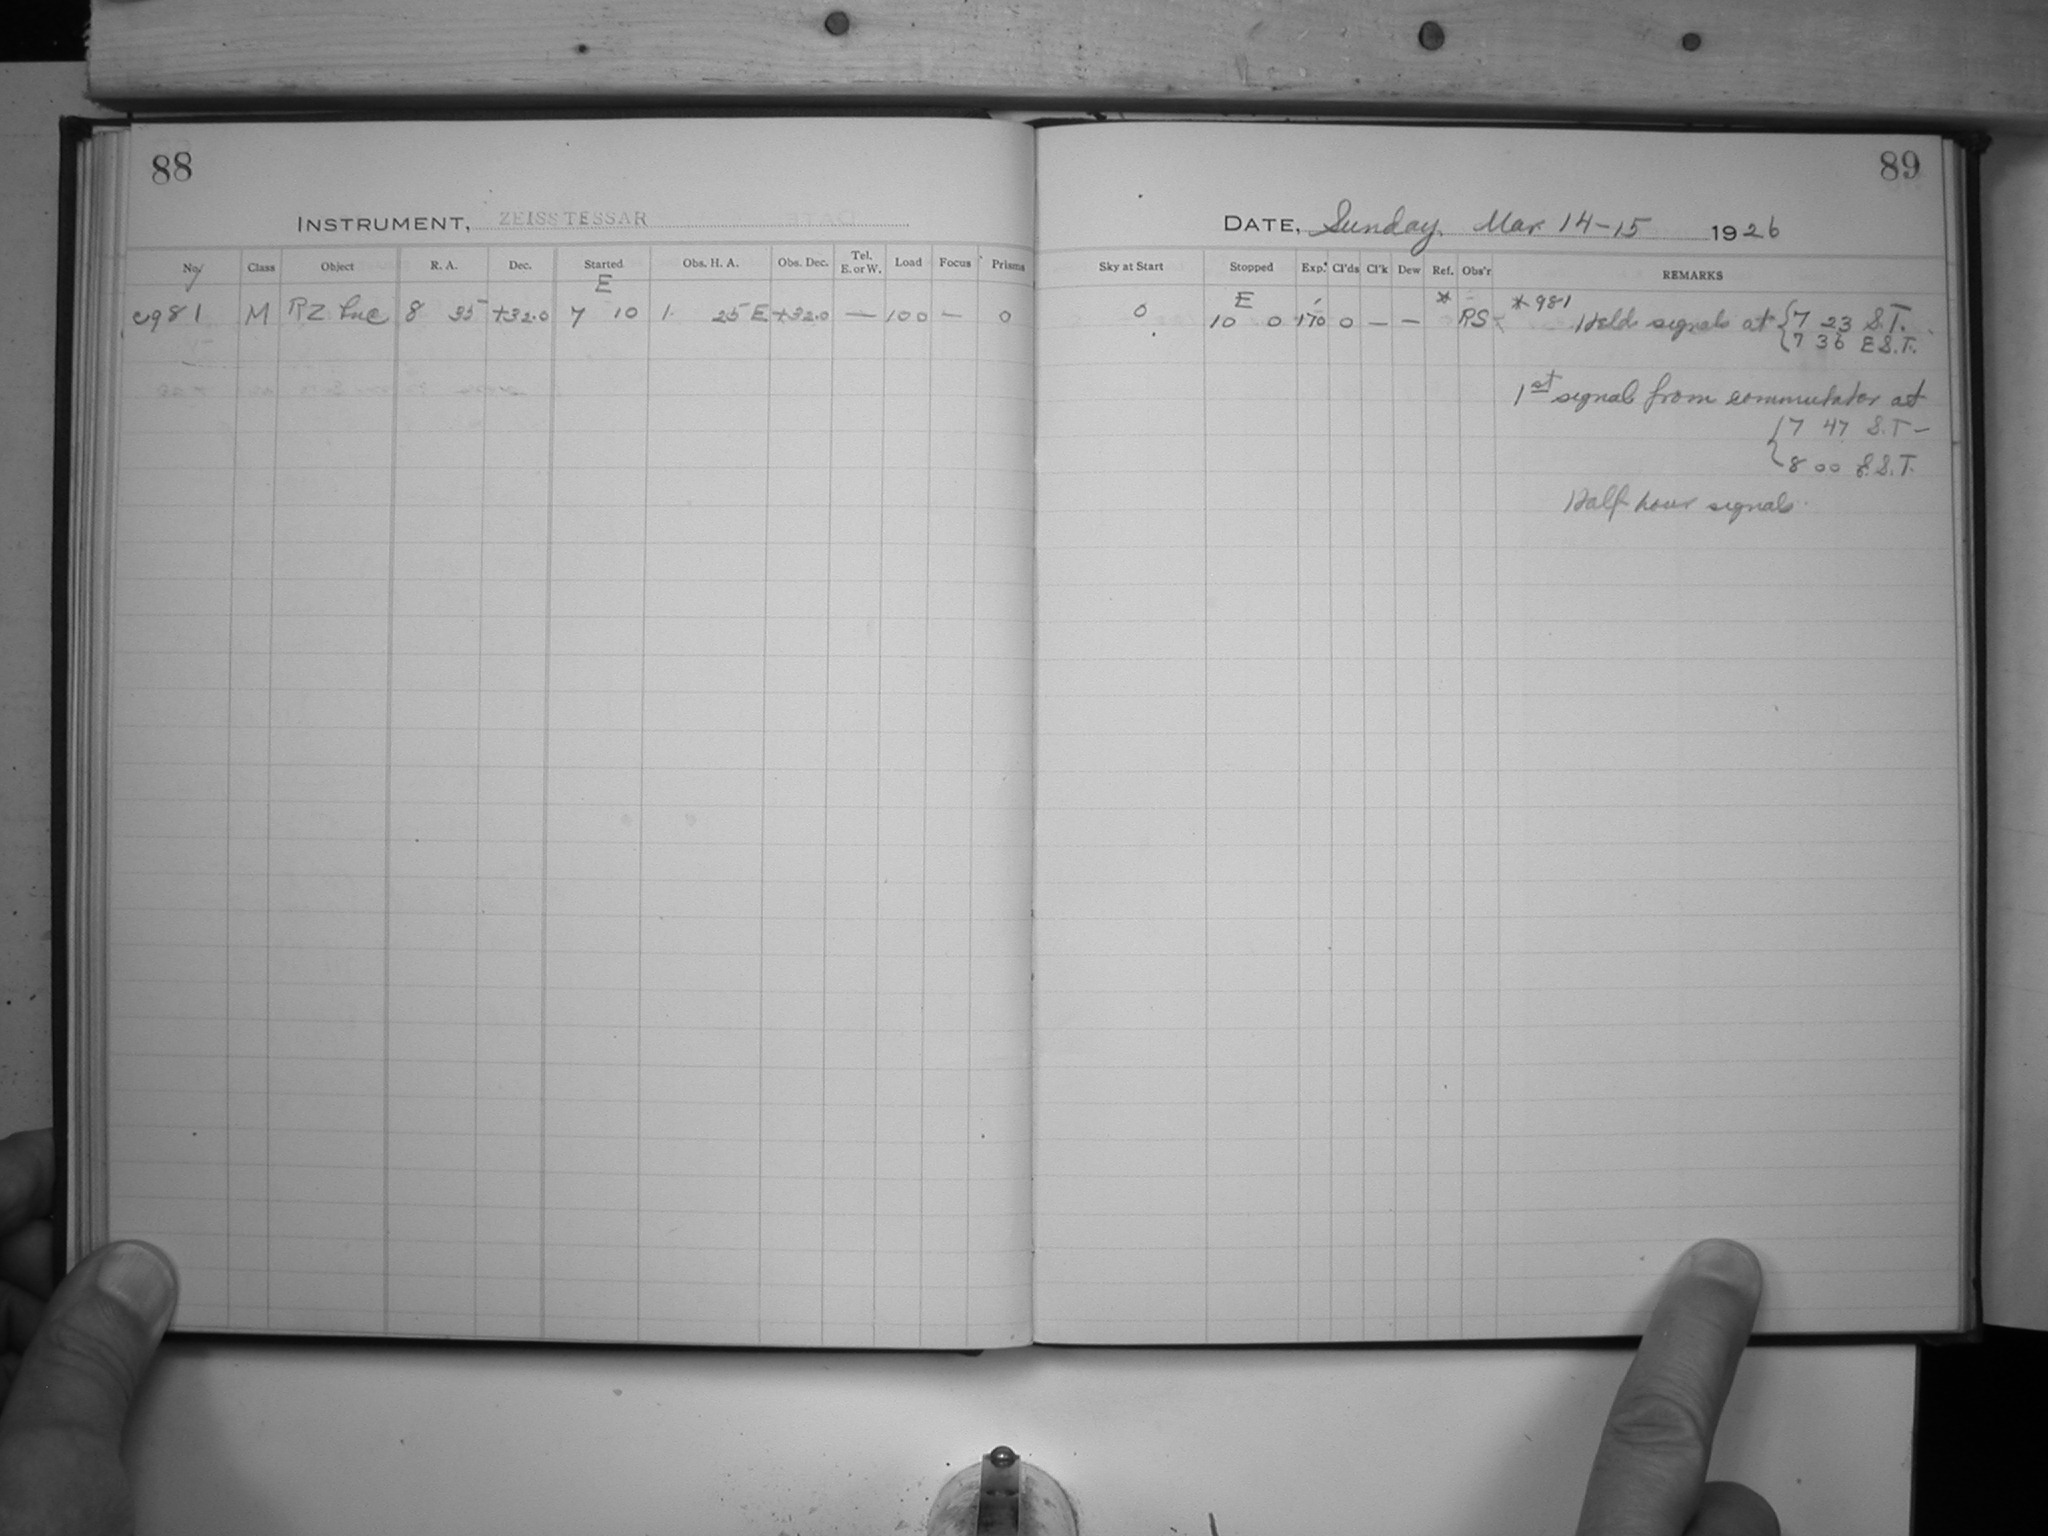 88
INSTRUMENT, ZEISS TESSAR
No. Class Object R. A. Dec. Started Obs. H. A. Obs. Dec. Tel. E. or W. Load Focus Prisms
E
c981 M RZ Cnc 8 35 +32.0 7 10 1 25 E +32.0 — 100 — 0
89
DATE, Sunday Mar 14-15 1926
Sky at Start Stopped Exp. Cl'ds Cl'k Dew Ref. Obs'r REMARKS
0 E 10 0 170 0 — — * RS
*981
Held signals at { 7 23 S.T.
{ 7 36 E.S.T.
1st signal from commutator at
{ 7 47 S.T —
{ 8 00 E.S.T.
Half hour signals